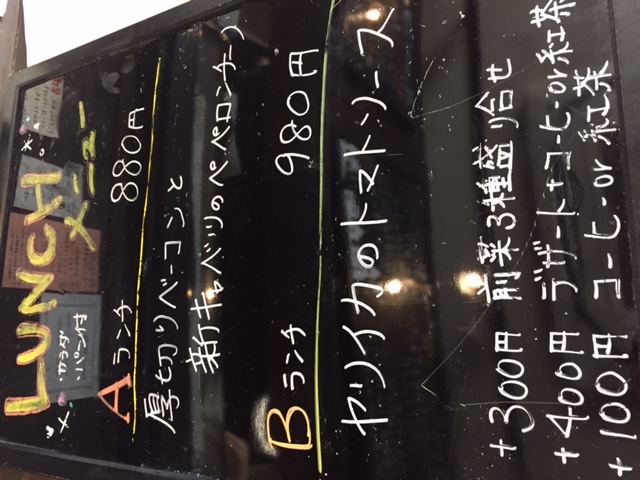 LUNCH
メニュー
サラダ
パン付
Aランチ 880円
厚切りベーコンと
新キャベツのペペロンチーノ
Bランチ 980円
ヤリイカのトマトソース
+300円 前菜3種盛り合せ
+400円 デザート+コーヒーor紅茶
+100円 コーヒーor紅茶